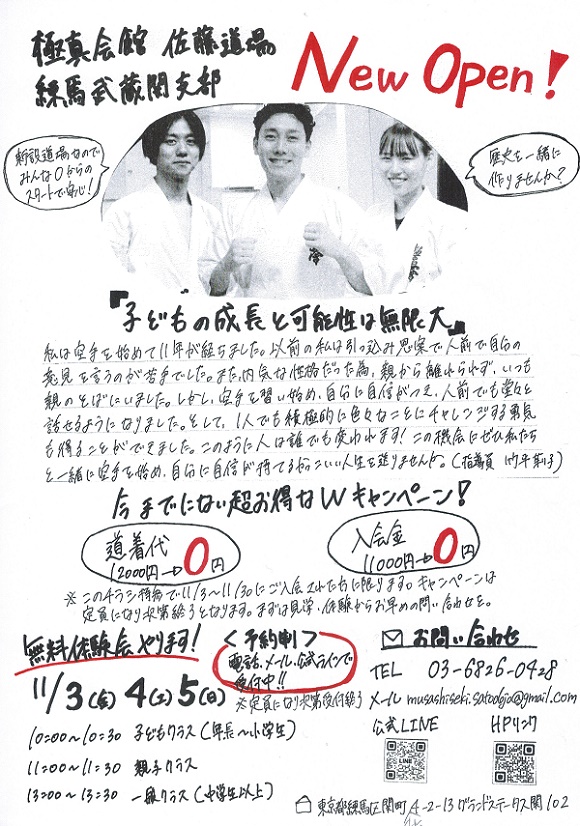 極真会館 佐藤道場
練馬武蔵関支部
New Open!
新設道場なので
みんな0からの
スタートで安心!
歴史を一緒に
作りませんか?
『子どもの成長と可能性は無限大』
私は空手を始めて11年が経ちました。以前の私は引っ込み思案で人前で自分の
意見を言うのが苦手でした。また、内気な性格だった為、親から離れられず、いつも
親のそばにいました。しかし、空手を習い始め、自分に自信がつき、人前でも堂々と
話せるようになりました。そして、1人でも積極的に色々なことにチャレンジする勇気
も得ることができました。このように人は誰でも変われます!この機会にぜひ私たち
と一緒に空手を始め、自分に自信が持てるかっこいい人生を送りませんか。(指導員
今までにない超お得なWキャンペーン!
道着代
12000円→0円
入会金
11000円→0円
※このチラシ特待で11/3〜11/30にご入会された方に限ります。キャンペーンは
定員になり次第終了となります。まずは見学、体験からお早めの問い合わせを。
無料体験会やります!
11/3(金) 4(土) 5(日)
10:00〜10:30 子どもクラス(年長〜小学生)
11:00〜11:30 親子クラス
13:00〜13:30 一般クラス(中学生以上)
<予約制>
電話、メール、公式ラインで
受付中!!
※定員になり次第受付終了
お問い合わせ
TEL 03-6826-0428
メール musashiseki.satodojo@gmail.com
公式LINE
HPリンク
LINE
東京都練馬区関町 4-2-13グランドステータス関 102